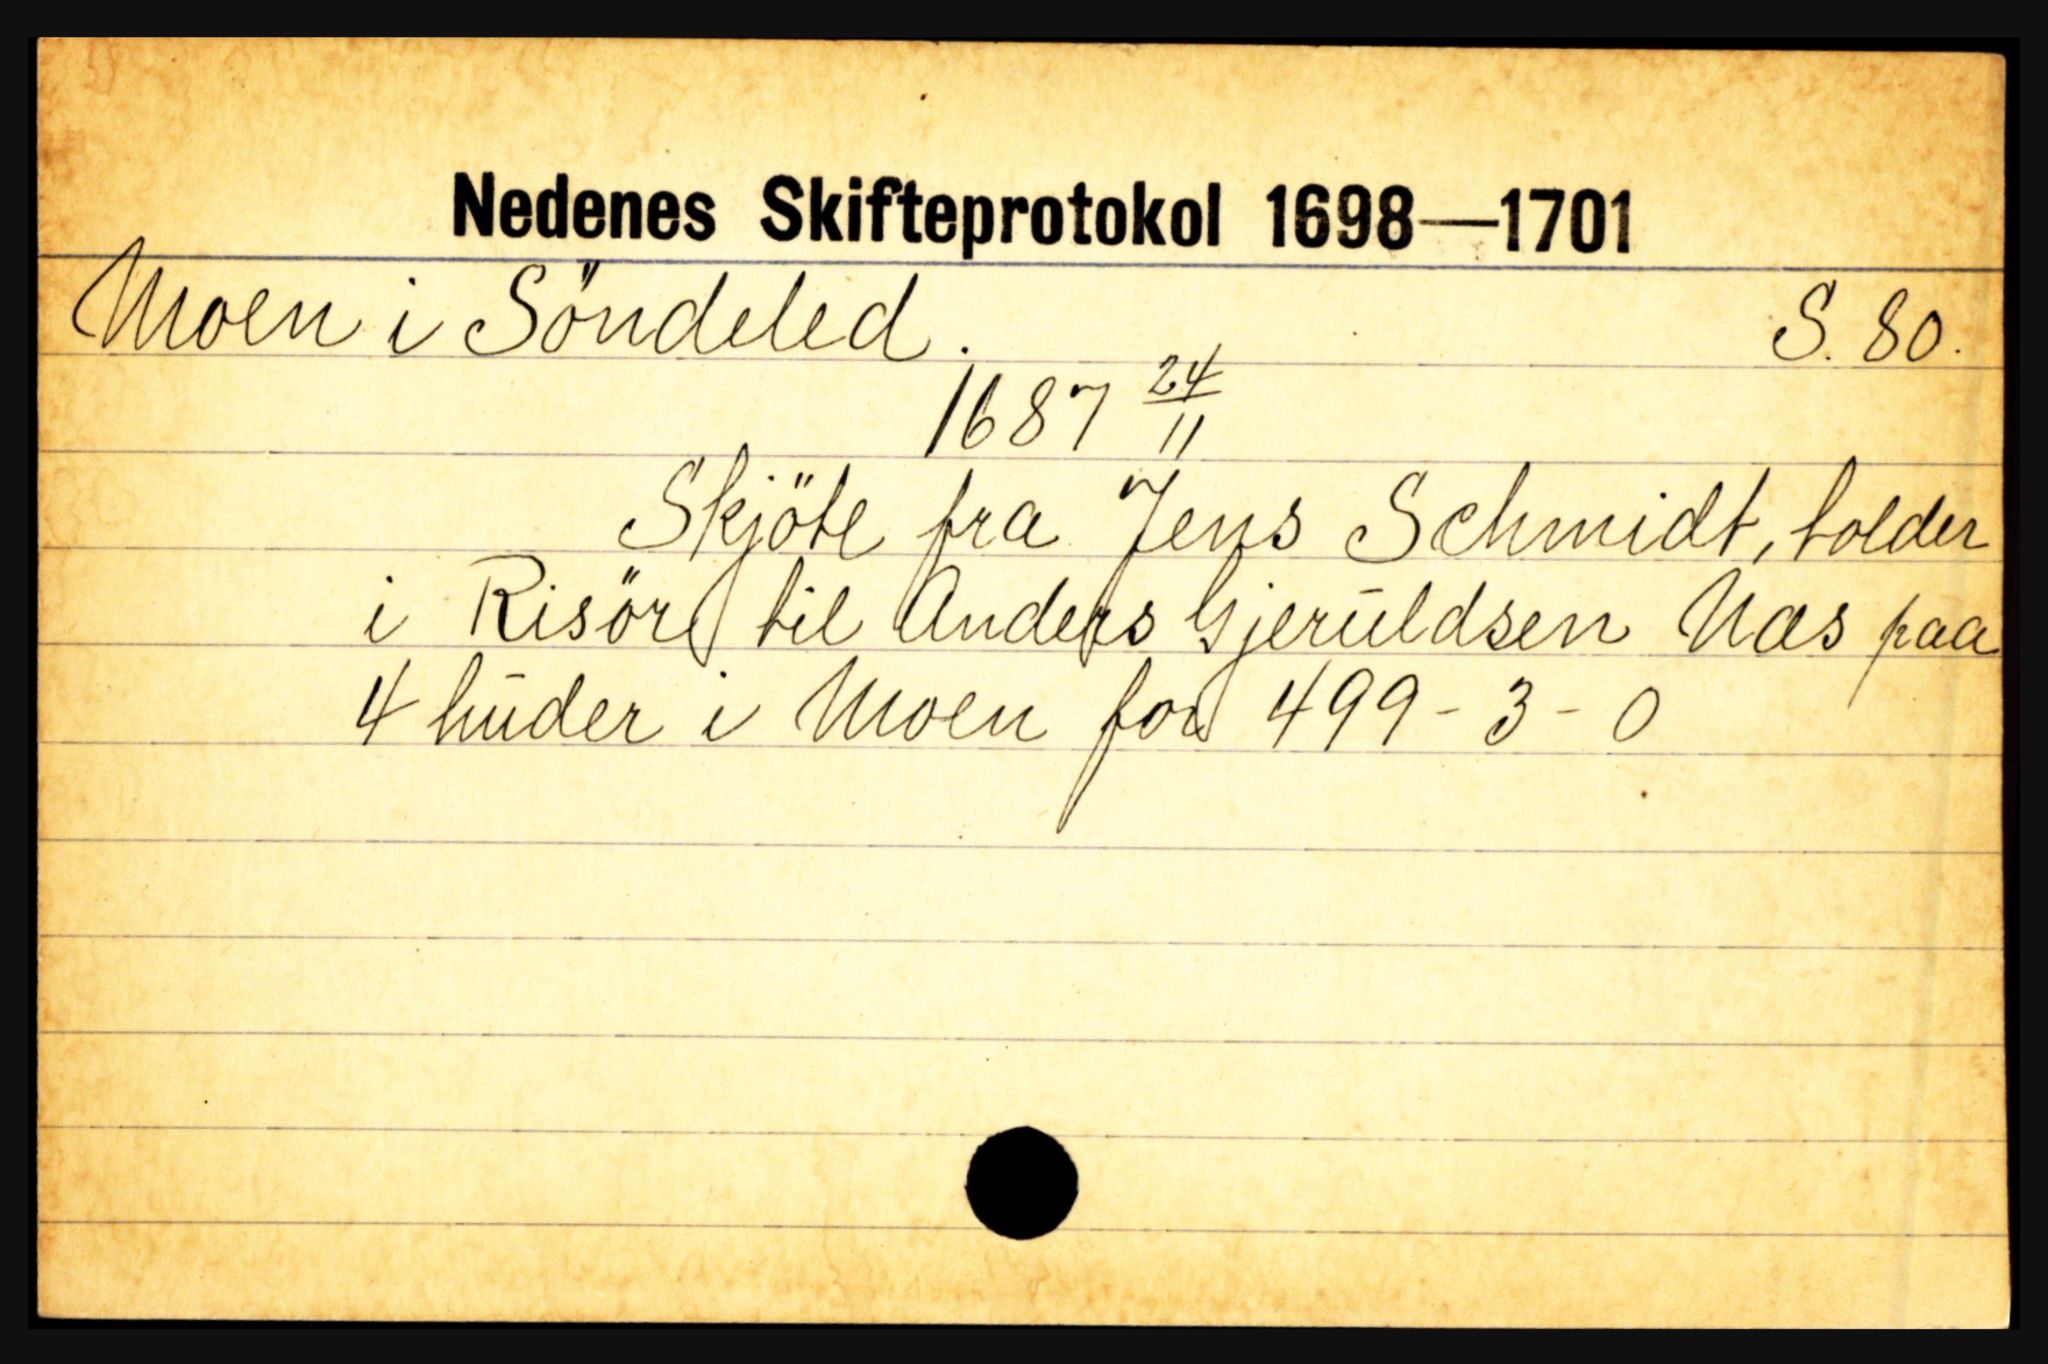 Nedenes Skifteprotokol 1698—1701
Moen i Söndeled. S. 80.
1687 24/11
Skjöte fra Jens Schmidt, tolder
i Risör til Anders Gjerŭldsen Næs paa
4 hŭder i Moen for 499 - 3 - 0